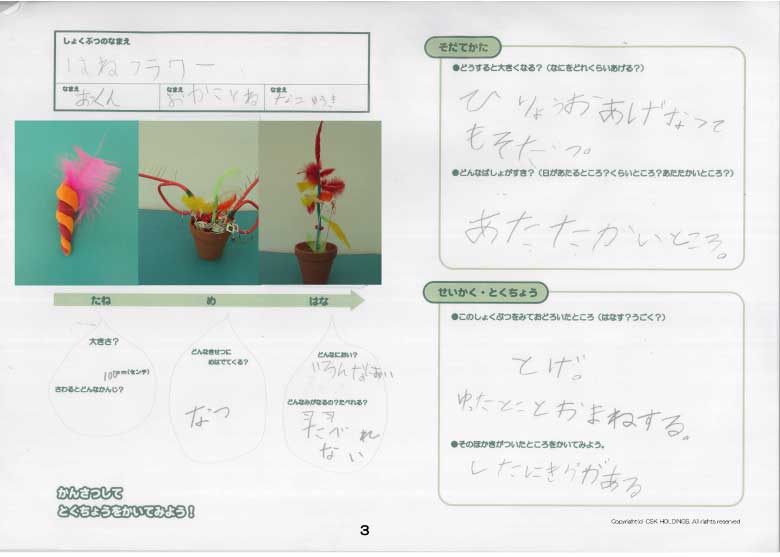 しょくぶつのなまえ
はねフラワー
なまえ
おくん
なまえ
なまえ
たね
め
はな
大きさ?
100
mm(センチ)
さわるとどんなかんじ?
どんなきせつに
めはでてくる?
なつ
どんなにおい?
いろんなにおい
どんなみがなるの?たべれる?
たべれ
ない
かんさつして
とくちょうをかいてみよう!
そだてかた
●どうすると大きくなる?(なにをどれくらいあげる?)
ひりょうおあげなって
もそだつ。
●どんなばしょがすき?(日があたるところ?くらいところ?あたたかいところ?)
あたたかいところ。
せいかく・とくちょう
●このしょくぶつをみておどろいたところ(はなす?うごく?)
とげ。
ゆったことおまねする。
●そのほかきがついたところをかいてみよう。
したにきゲがある
3
Copyright(c) CSK HOLDINGS. All rights reserved